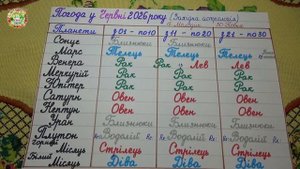 Погода у Червні 2026 року (Західна астрологія)
Планети з 01 - по 10 з 11 - по 20 з 21 - по 30
Сонце Близнюки Близнюки Близнюки
Марс Телець Телець Телець
Венера Рак Рак Лев Лев
Меркурій Рак Рак Рак
Юпітер Рак Рак Рак
Сатурн Овен Овен Овен
Нептун Овен Овен Овен
Уран Близнюки Близнюки Близнюки
Плутон Водолій Водолій Водолій
Чорний Місяць Стрілець Стрілець Стрілець
Білий Місяць Діва Діва Діва